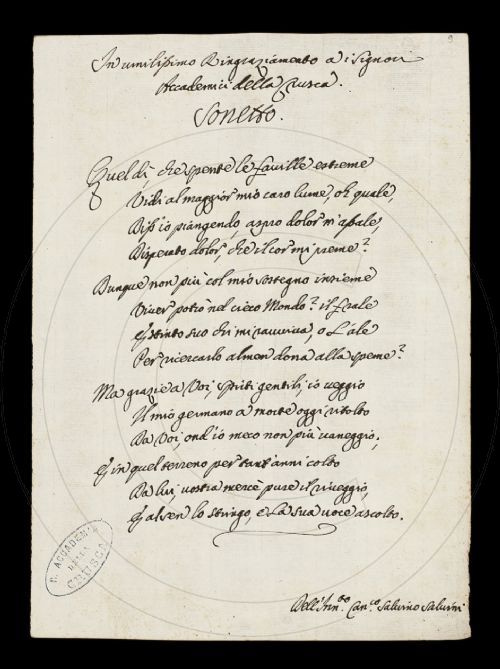 9
In umilissimo Ringraziamento a i Signori
Accademici della Crusca.
Sonetto.
Quel dì, che spente le faville estreme
Vidi al maggior mio caro lume, oh quale,
Diss'io piangendo, aspro dolor m'assale,
Disperato dolor, che il cor mi preme?
Dunque non più col mio sostegno insieme
Viver potrò nel cieco Mondo? il frale
Estinto suo chi mi ravviva, o l'ale
Per ricercarlo almen dona alla speme?
Ma grazie a Voi, Spirti gentili, io veggio
Il mio germano a morte oggi ritolto
Da Voi, ond'io meco non più vaneggio;
E in quel terreno per tant'anni colto
Da lui, vostra mercè pure il riveggio,
E al sen lo stringo, e la sua voce ascolto.
R. ACCADEMIA
DELLA
CRUSCA
Dell' Can.co Salvino Salvini